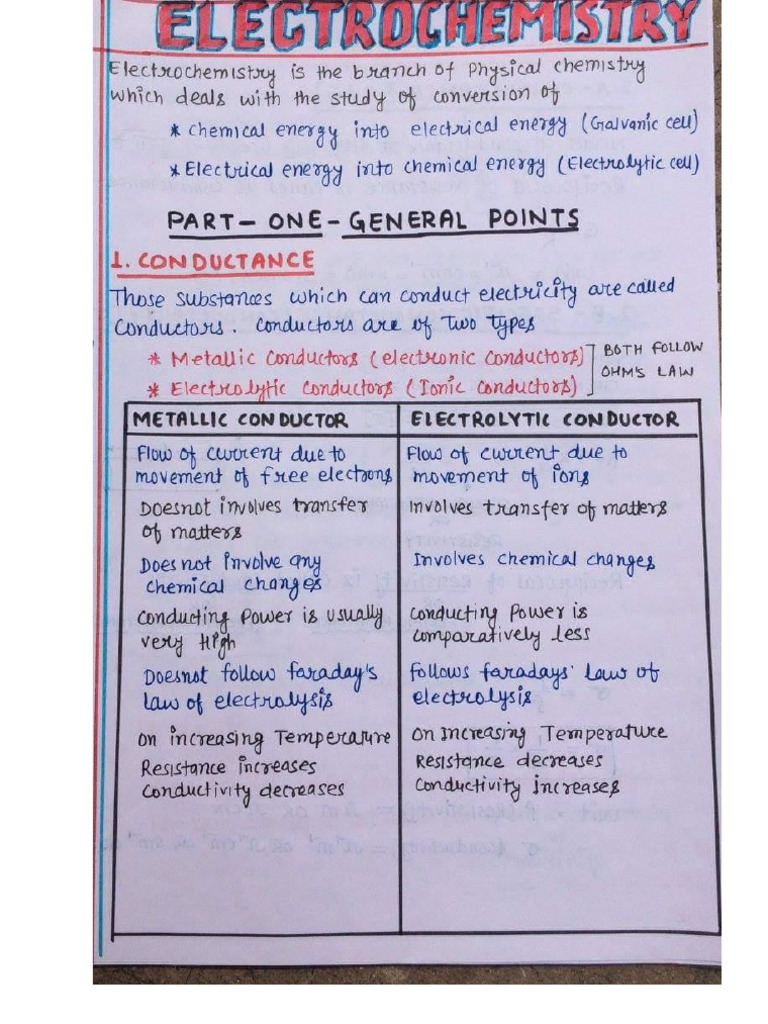 ELECTROCHEMISTRY
Electrochemistry is the branch of Physical chemistry
which deals with the study of conversion of
* chemical energy into electrical energy (Galvanic cell)
* Electrical energy into chemical energy (Electrolytic cell)
PART-ONE-GENERAL POINTS
1. CONDUCTANCE
Those substances which can conduct electricity are called
Conductors. Conductors are of Two Types
* Metallic Conductors (electronic Conductors)
* Electrolytic Conductors (Ionic Conductors)
BOTH FOLLOW
OHM'S LAW
METALLIC CONDUCTOR
Flow of current due to
movement of free electrons
Doesnot involves transfer
of matters
Does not involve any
chemical changes
Conducting Power is usually
very High
Doesnot follow faraday's
law of electrolysis
On increasing Temperature
Resistance increases
Conductivity decreases
ELECTROLYTIC CONDUCTOR
Flow of current due to
movement of ions
Involves transfer of matters
Involves chemical changes
Conducting Power is
comparatively less
follows faradays' law of
electrolysis
On increasing Temperature
Resistance decreases
Conductivity increases